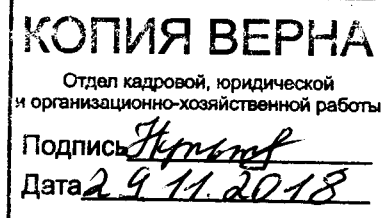 КОПИЯ ВЕРНА
Отдел кадровой, юридической
и организационно-хозяйственной работы
Подпись
Дата 29.11.2018